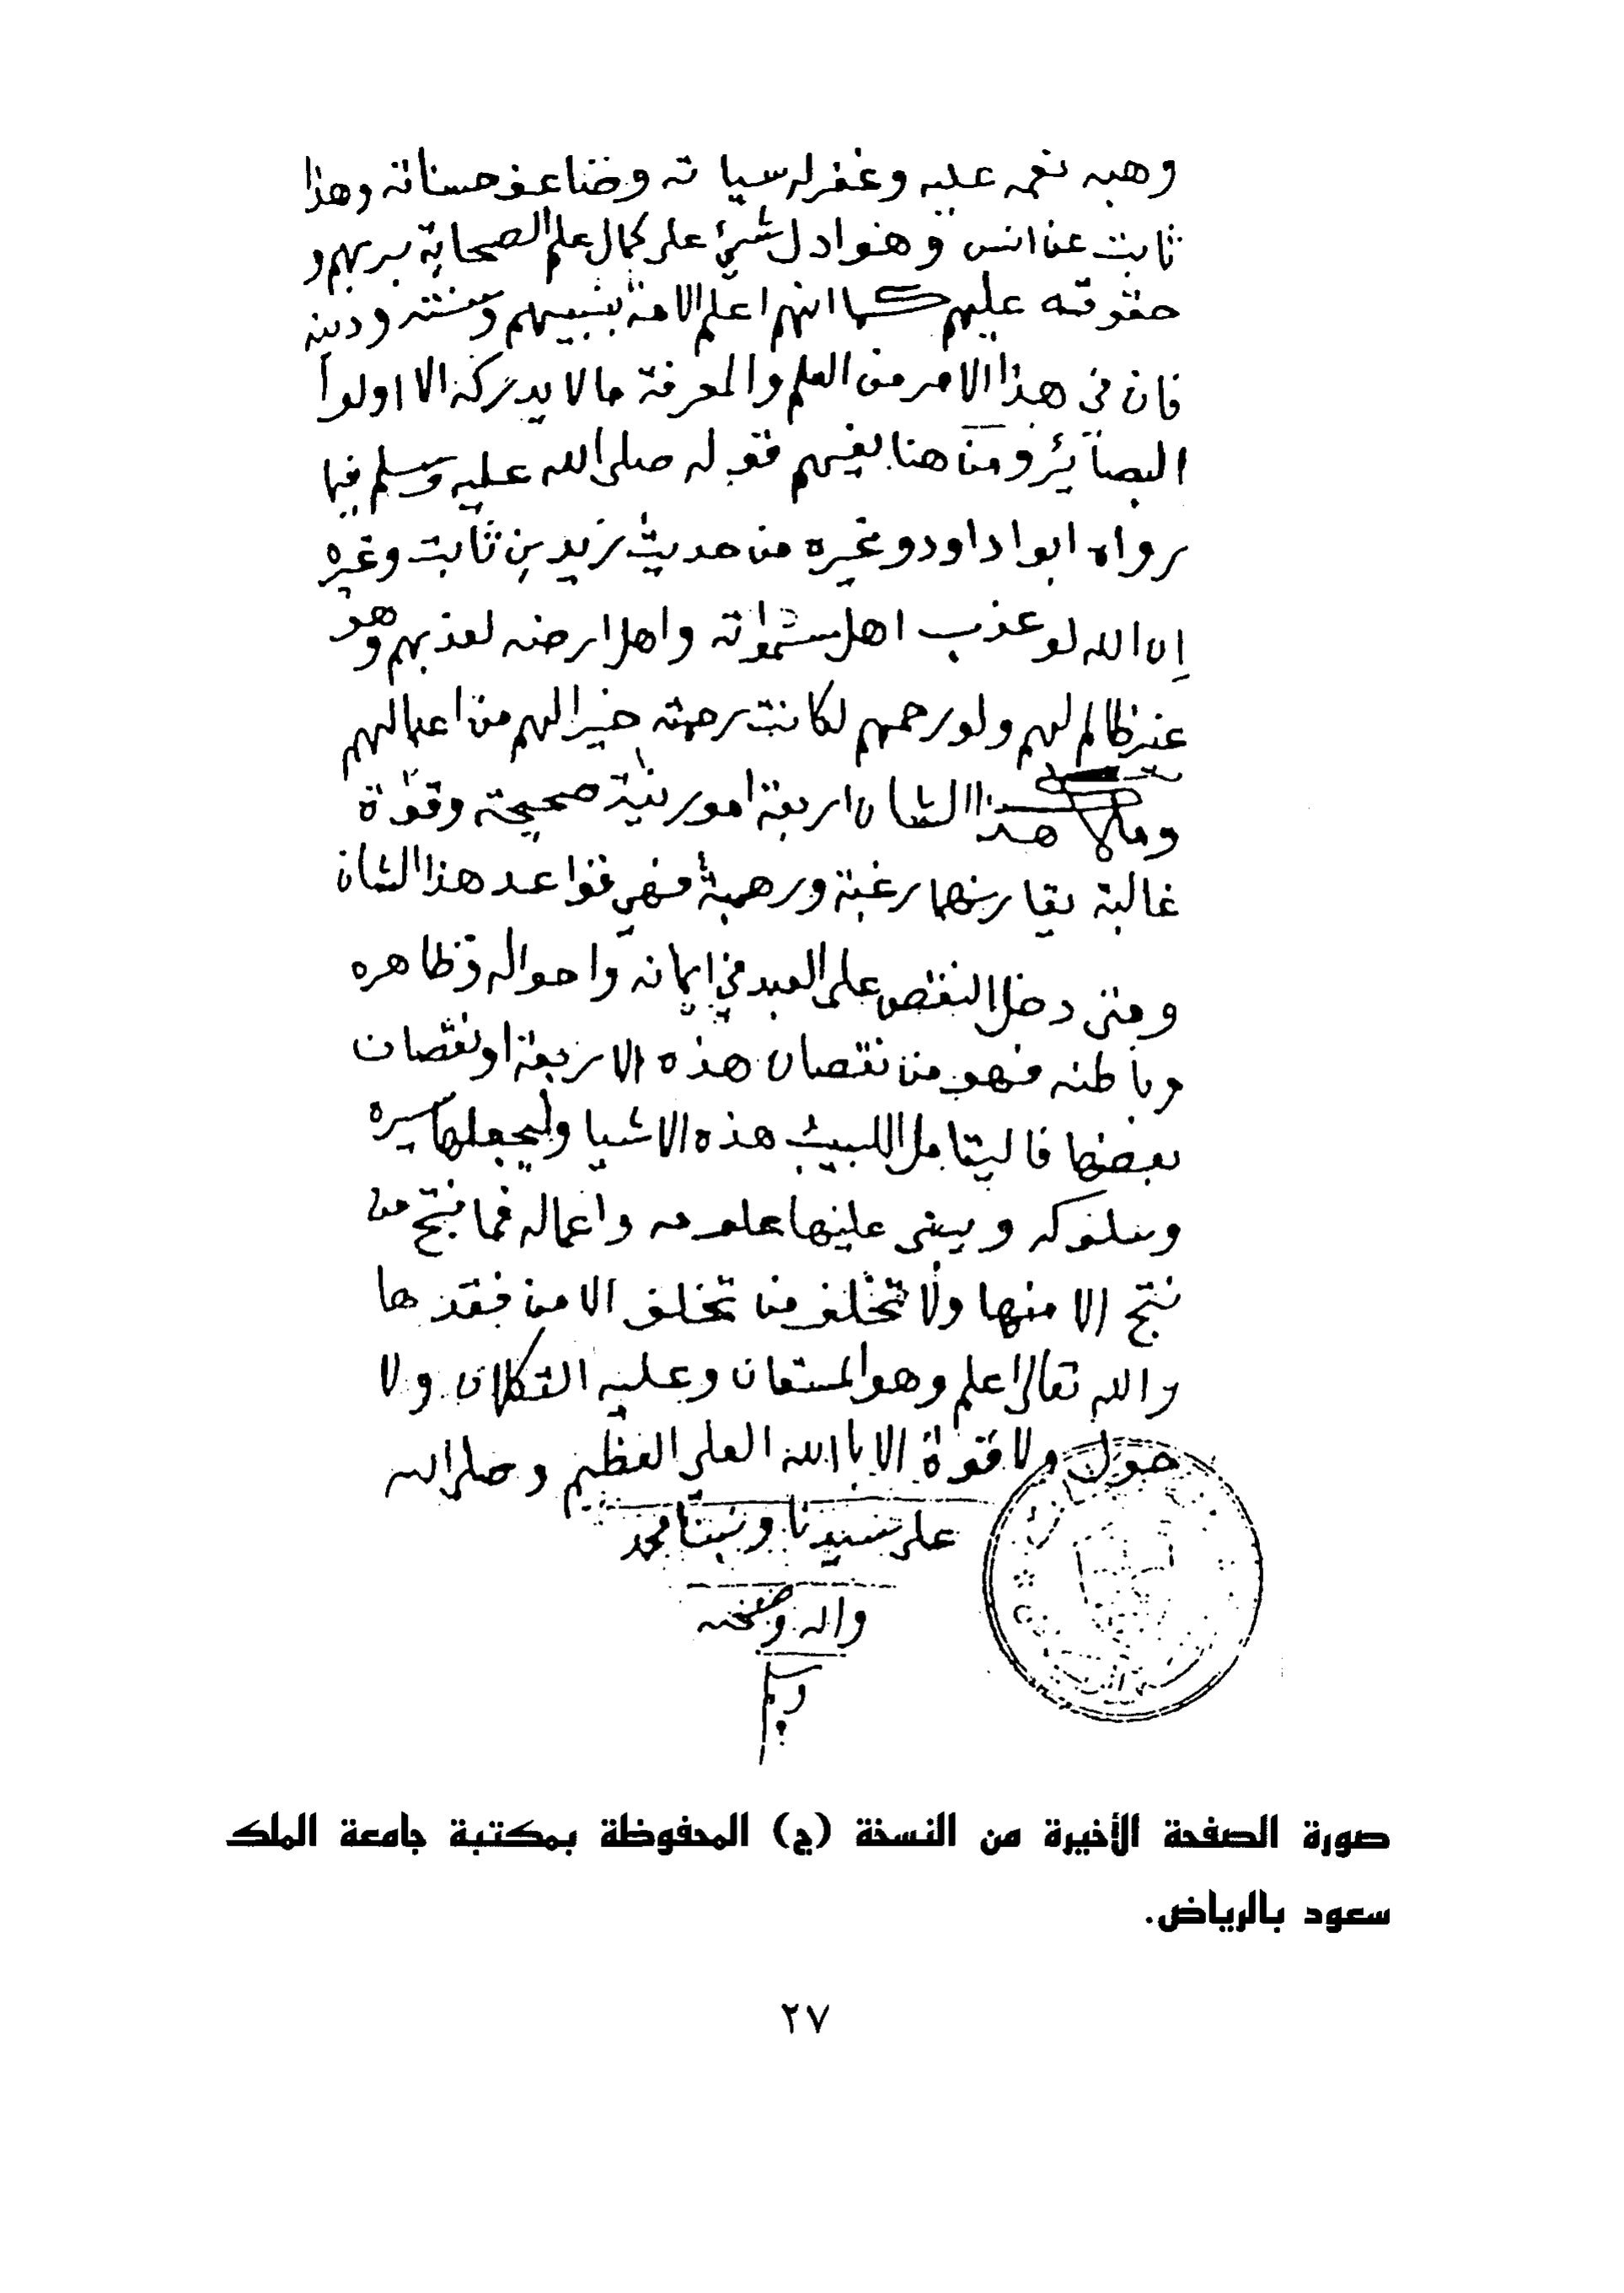 وهبه نعمه عليه وغفر له سياته وضاعف حسناته وهذا
ثابت عن انس وهو ادل شيئ على كمال علم الصحابة بربهم و
حقوقه عليهم كما انهم اعلم الامة بنبيهم وسنته ودينه
فان في هذا الامر من العلم والمعرفة ما لا يدركه الا اولوا
البصائر ومن هنا يفهم قوله صلى الله عليه وسلم فيما
رواه ابوا داود وغيره من حديث زيد بن ثابت وغيره
إن الله لو عذب اهل سمواته واهل ارضه لعذبهم وهو
غير ظالم لهم ولو رحمهم لكانت رحمته خيرا لهم من اعمالهم
وملاك هذا الشان اربعة امور نية صحيحة وقوة
غالبة يقارنهما رغبة ورهبة فهي قواعد هذا الشان
ومتى دخل النقص على العبد في ايمانه واحواله وظاهره
وباطنه فهو من نقصان هذه الاربعة او نقصان
بعضها فاليتامل اللبيب هذه الاشيا وليجعلها سيره
وسلوكه ويبني عليها علومه واعماله فما نتج من
نتج الا منها ولا تخلف من تخلف الا من فقدها
والله تعالى اعلم وهو المستعان وعليه التكلان ولا
حول ولا قوة الا باالله العلي العظيم وصلى الله
على سيدنا ونبينا محمد
واله وصحبه
وسلم
صورة الصفحة الأخيرة من النسخة (ج) المحفوظة بمكتبة جامعة الملك
سعود بالرياض.
٢٧